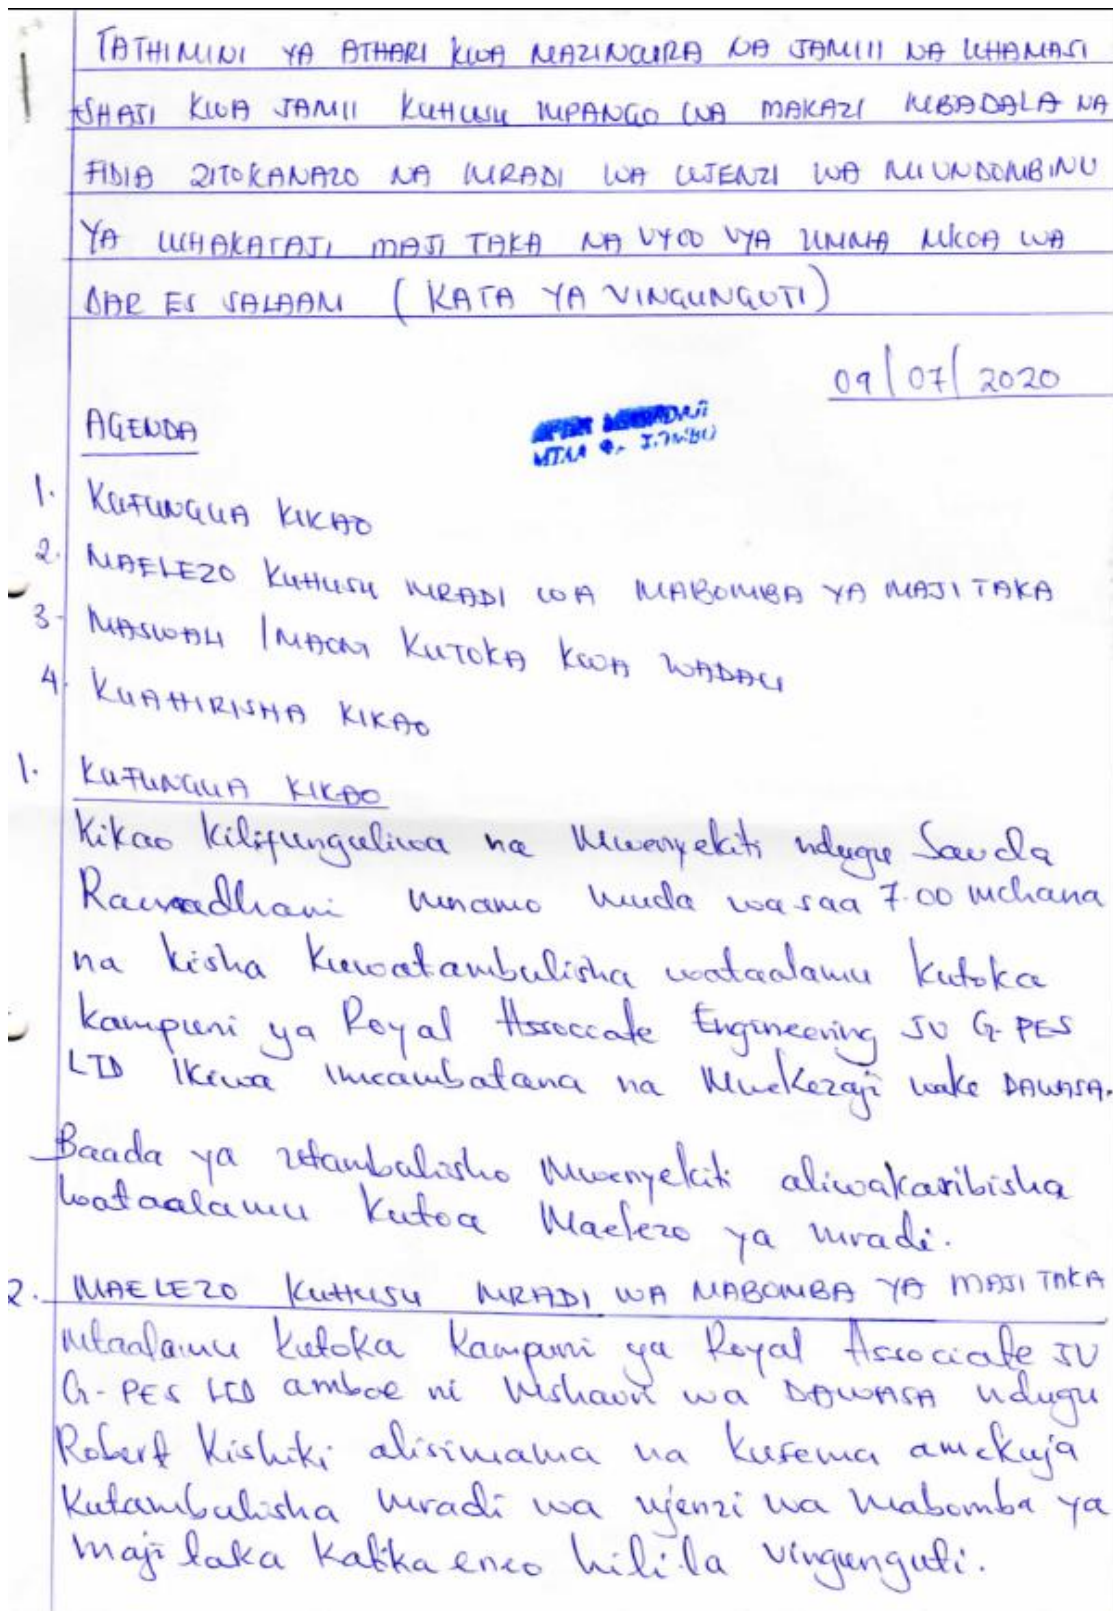 TATHIMINI YA ATHARI KWA MAZINGIRA NA JAMIII NA UHAMASI
SHAJI KWA JAMII KUHUSU MPANGO WA MAKAZI MBADALA NA
FIDIA ZITOKANAZO NA MRADI WA UJENZI WA MIUNDOMBINU
YA UCHAKATAJI MAJI TAKA NA VYOO VYA UMMA MKOA WA
DAR ES SALAAM (KATA YA VINGUNGUTI)
09/07/2020
AGENDA
MTAA
1. KUFUNGUA KIKAO
2. MAELEZO KUHUSU MRADI WA MABOMBA YA MAJI TAKA
3- MASWALI /MAONI KUTOKA KWA WADAU
4. KUAHIRISHA KIKAO
1. KUFUNGUA KIKAO
Kikao kilifunguliwa na Mwenyekiti ndugu Sauda
Ramadhani mnamo muda wa saa 7.00 mchana
na kisha kuwatambulisha wataalamu kutoka
kampuni ya Royal Associate Engineering JV G-PES
LTD ikiwa imeambatana na Muekezaji wake DAWASA.
Baada ya utambulisho Mwenyekiti aliwakaribisha
wataalamu kutoa Maelezo ya mradi.
2. MAELEZO KUHUSU MRADI WA MABOMBA YA MAJI TAKA
Mtaalamu kutoka kampuni ya Royal Associate JV
G-PES LTD ambae ni Mshauri wa DAWASA ndugu
Robert Kishiki alisimama na kusema amekuja
kutambulisha mradi wa ujenzi wa mabomba ya
maji taka katika eneo hili la vingunguti.